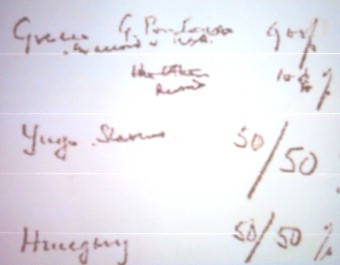 Greece G. Britain 90%
in accord with USA
the others
Russia 10%
Yugo. Slavia 50/50
Hungary 50/50 %